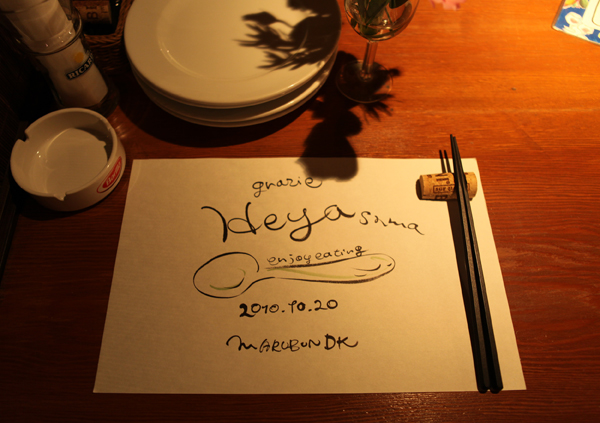 RICARD
grazie
Heya sama
enjoy eating
2010.10.20
MARUBUN DK